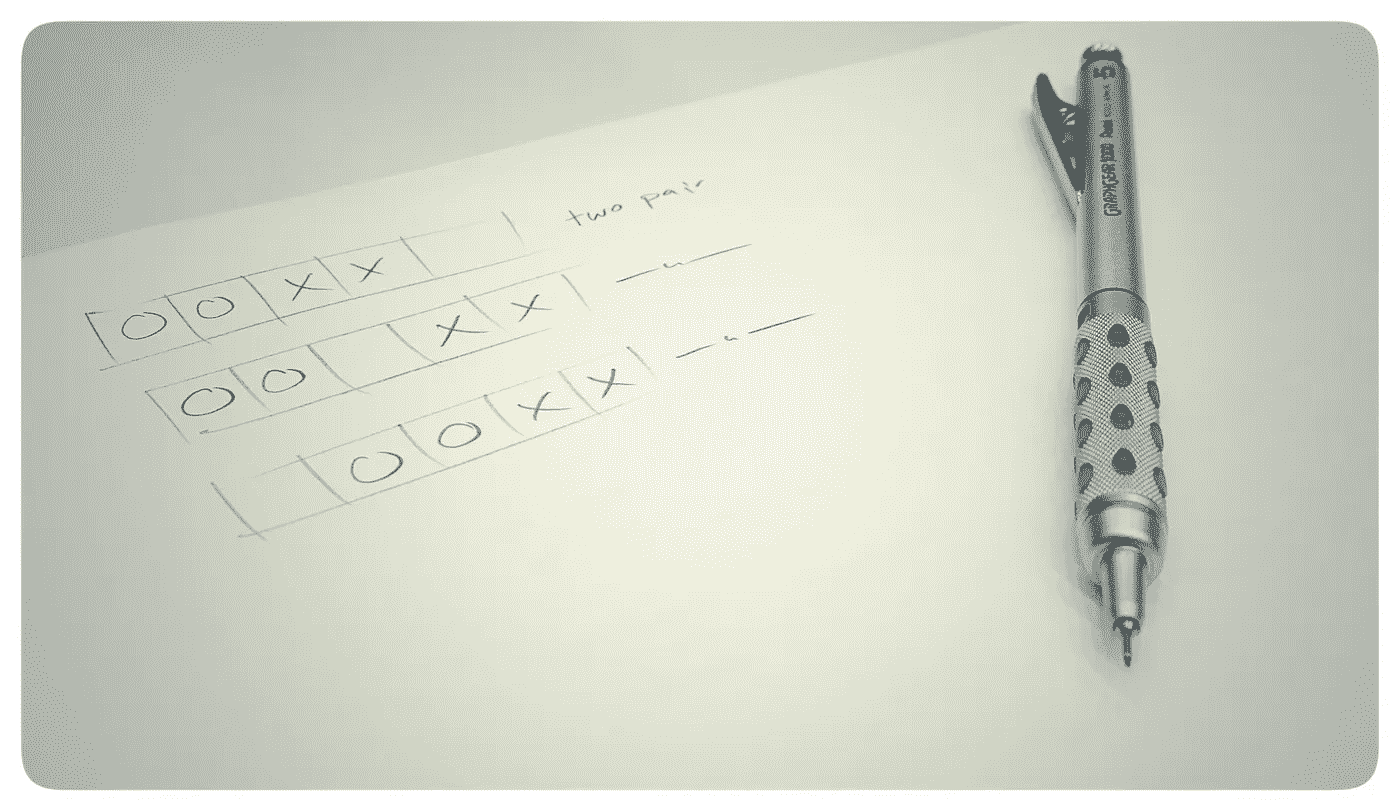 O O X X two pair
O O X X — " —
O O X X — " —
GRAPHGEAR 1000
5